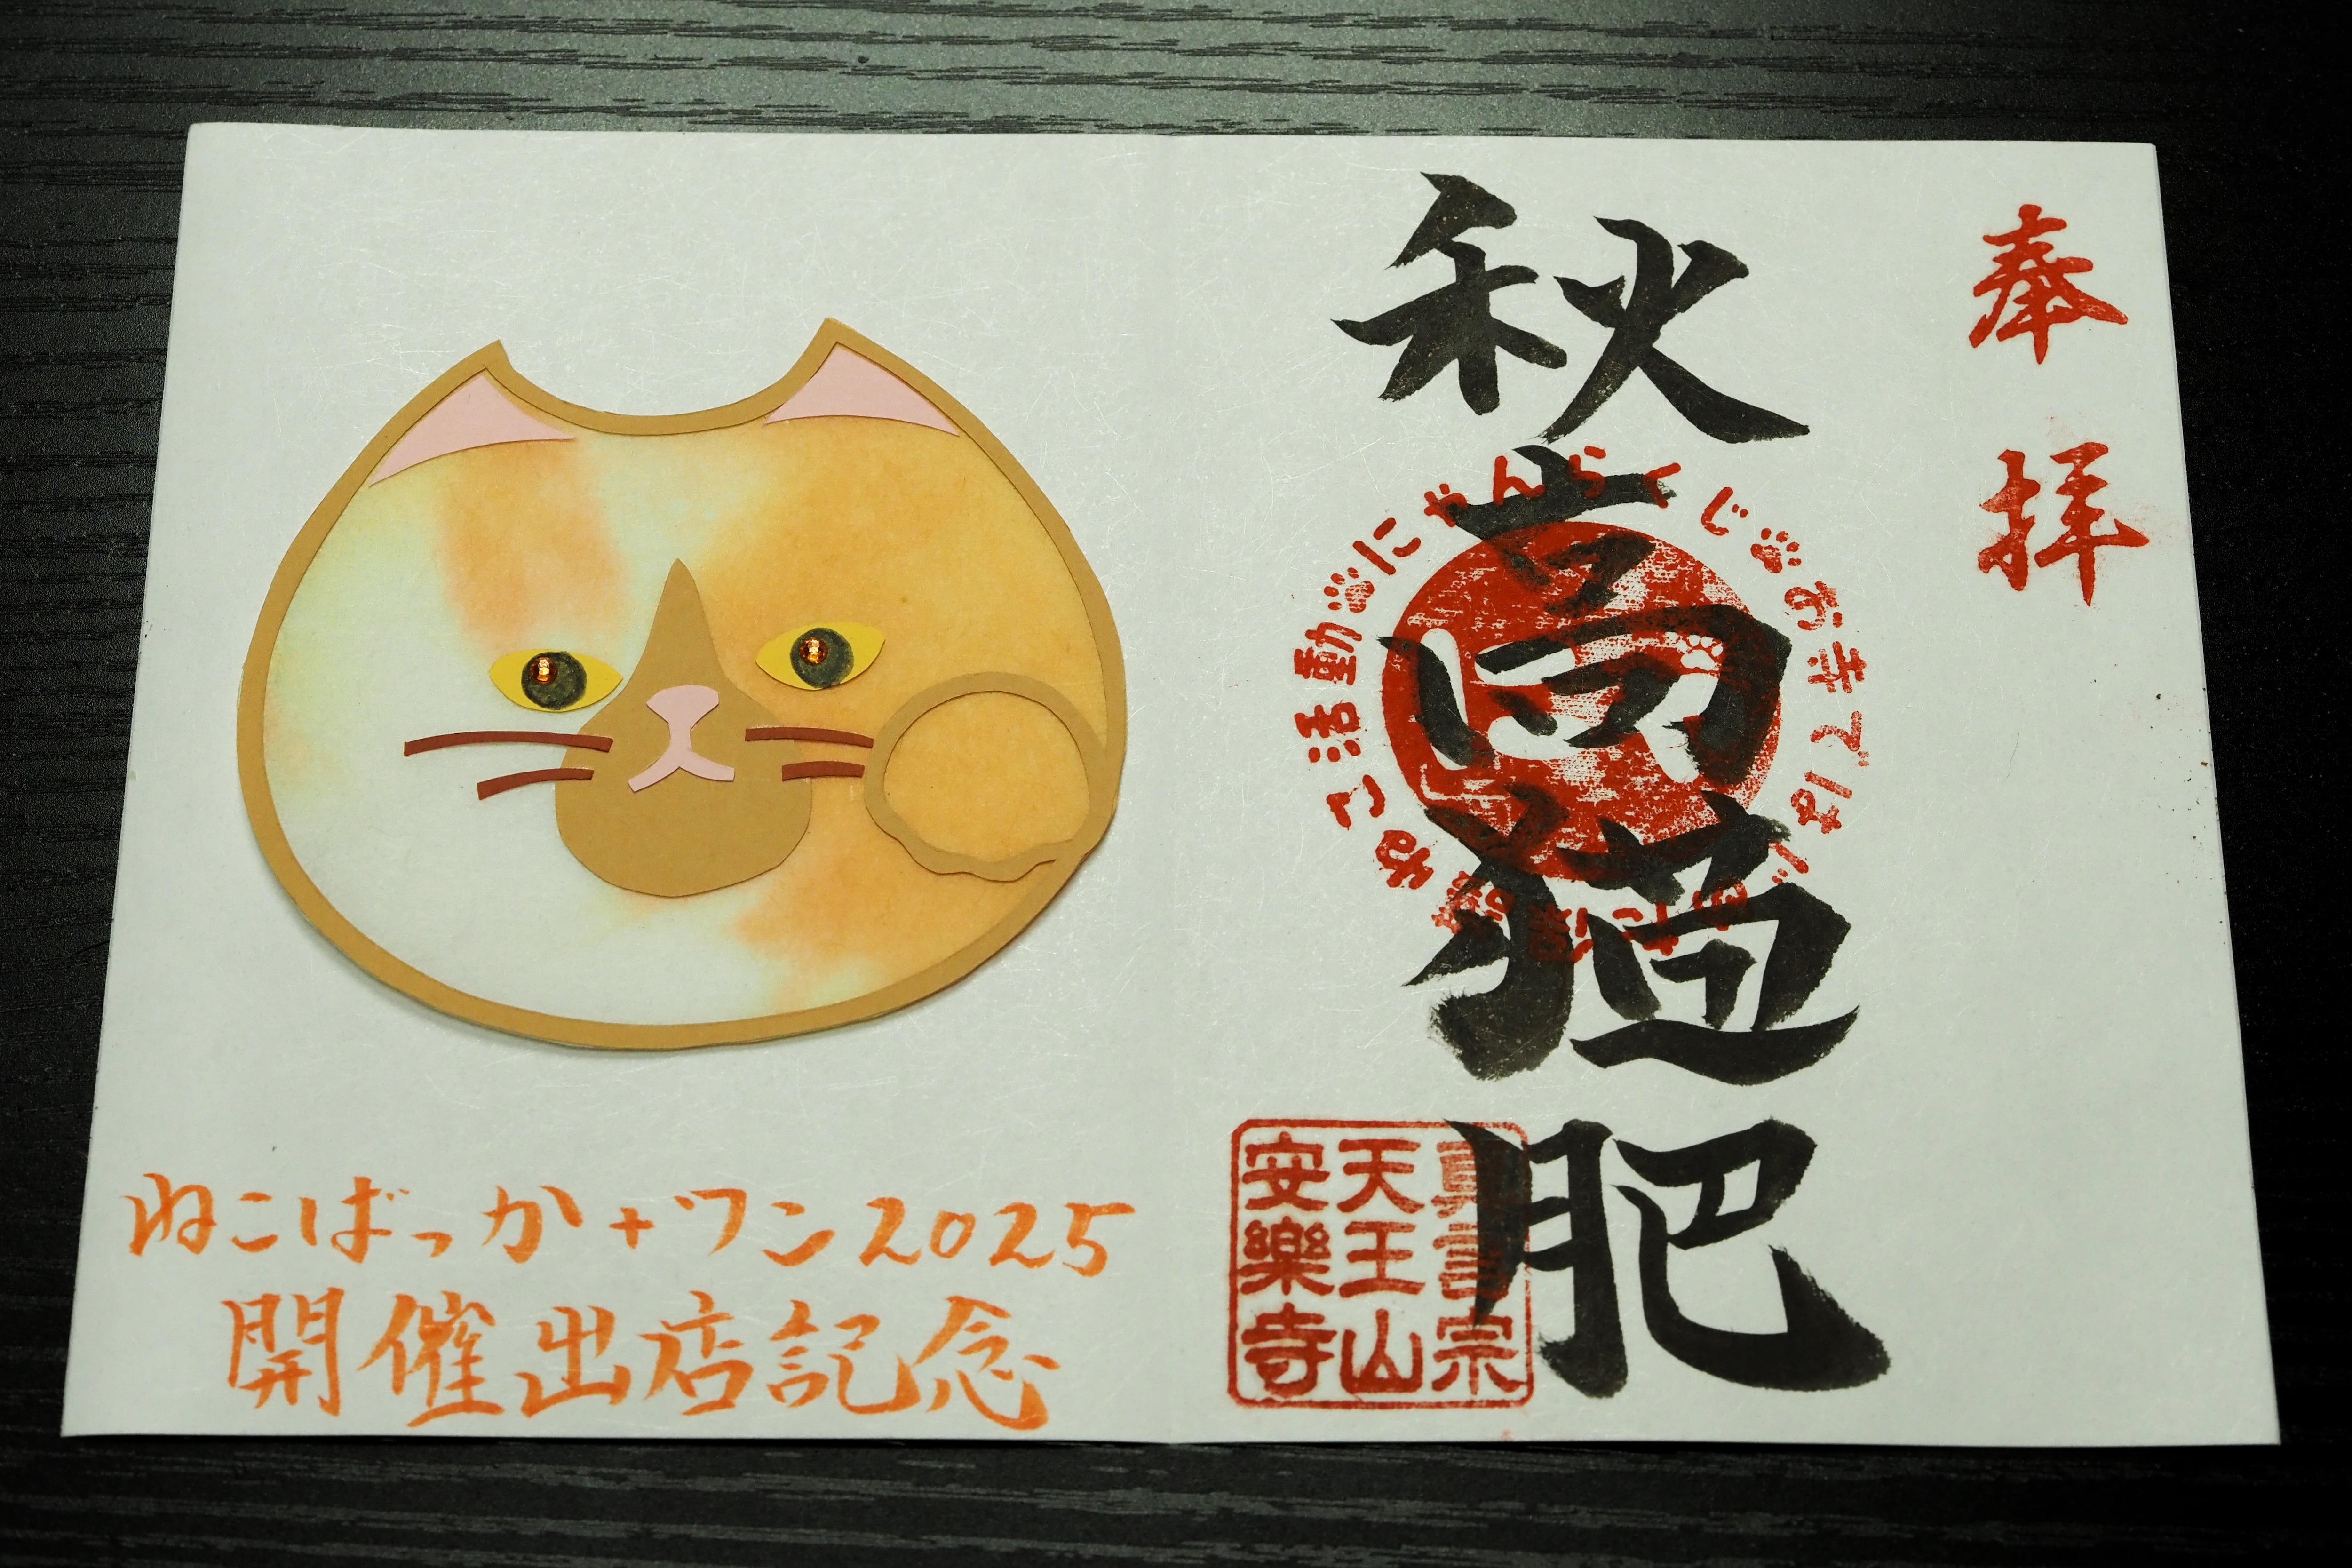 奉拝
秋高猫肥
にゃんらくじ🐾お寺で
ねこ活動🐾
真言宗
天王山
安樂寺
ねこばっか+ワン2025
開催出店記念